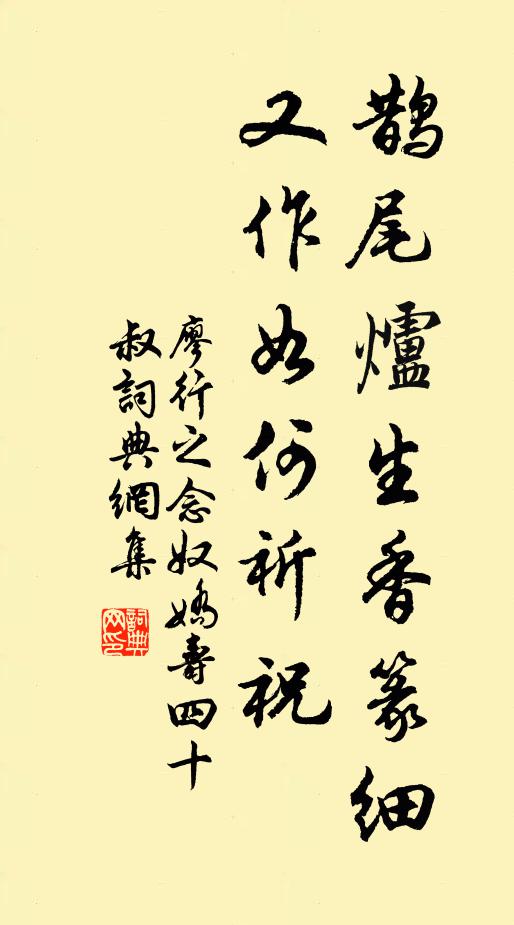 鵲尾爐生香篆細
又作如何祈祝
廖行之念奴嬌壽四十
叔詞典網集
詞典網印